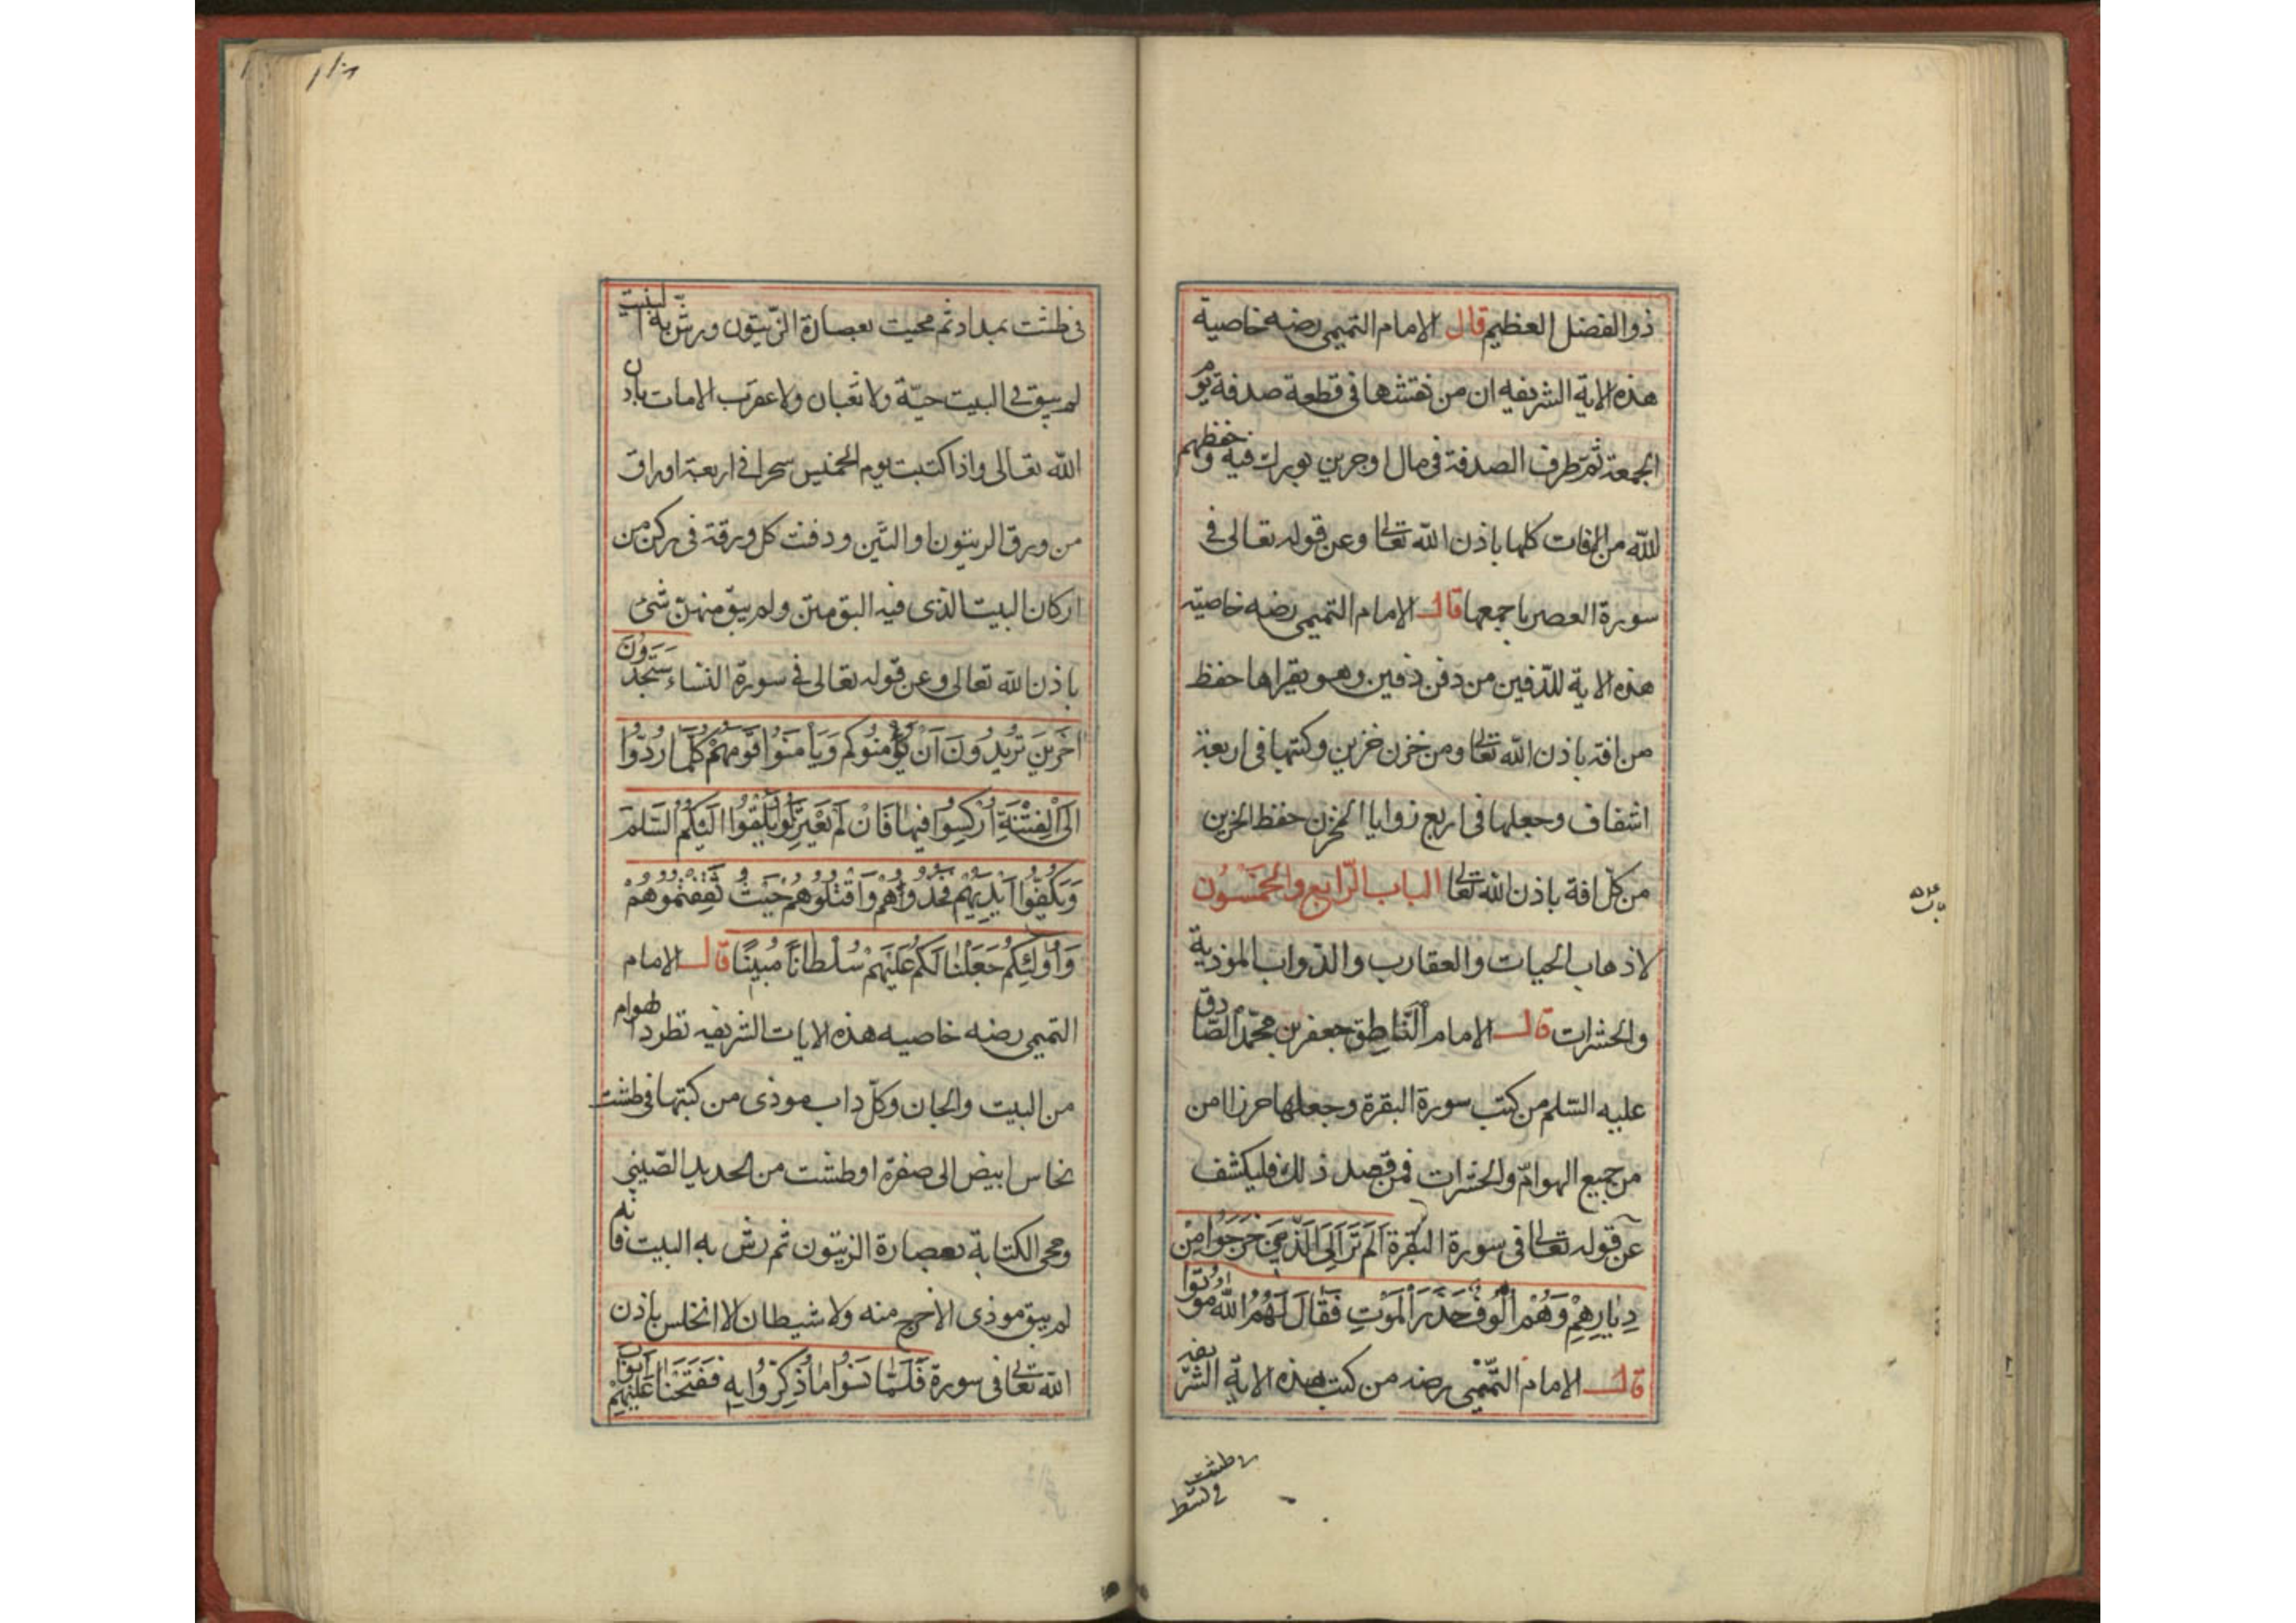 ذوالفضل العظيم قال الامام التميمى رضه خاصية
هذه الاية الشريفه ان من نقشها فى قطعة صدفة يوم
الجمعة ثم طرف الصدفة فى مال او جرين بورك فيه وحفظهم
الله من الافات كلها باذن الله تعالى وعن قوله تعالى فى
سورة العصر باجمعها قال الامام التميمى رضه خاصيته
هذه الاية للدفين من دفن دفين وهو يقراها حفظ
من افة باذن الله تعالى ومن خزن خزين وكتبها فى اربعة
اشفاف وجعلها فى اربع زوايا المخزن حفظ الخزين
من كل افة باذن الله تعالى الباب الرابع والخمسون
لاذهاب الحيات والعقارب والدواب المؤذية
والحشرات قال الامام الناطق جعفر بن محمد الصادق
عليه السلم من كتب سورة البقرة وجعلها حرزا امن
من جميع الهوام والحشرات فمن قصد ذلك فليكشف
عن قوله تعالى فى سورة البقرة اَلَمْ تَرَ اِلَى الَّذينَ خَرَجُوا مِنْ
دِيَارِهِمْ وَهُمْ اُلُوفٌ حَذَرَ الْمَوْتِ فَقَالَ لَهُمُ اللّٰهُ مُوتُوا
قال الامام التميمى رضه من كتب هذه الاية الشريفه
فى طشت
فى طشت بمداد ثم محيت بعصارة الزيتون ورش به البيت
لم يبق فى البيت حية ولا ثعبان ولا عقرب الا مات باذن
الله تعالى واذا كتبت يوم الخميس سحرا فى اربعة اوراق
من ورق الزيتون او التين ودفنت كل ورقة فى ركن من
اركان البيت الذى فيه البق متن ولم يبق منهن شئ
باذن الله تعالى وعن قوله تعالى فى سورة النساء سَتَجِدُونَ
آخَرِينَ تُرِيدُونَ اَنْ يَأْمَنُوكُم وَيَأْمَنُوا قَوْمَهُمْ كُلَّمَا رُدُّوا
اِلَى الْفِتْنَةِ اُرْكِسُوا فِيهَا فَاِنْ لَمْ يَعْتَزِلُوكُمْ وَيُلْقُوا اِلَيْكُمُ السَّلَمَ
وَيَكُفُّوا اَيْدِيَهُمْ فَخُذُوهُمْ وَاقْتُلُوهُمْ حَيْثُ ثَقِفْتُمُوهُمْ
وَاُولٰئِكُمْ جَعَلْنَا لَكُمْ عَلَيْهِمْ سُلْطَانًا مُبِينًا قال الامام
التميمى رضه خاصيه هذه الايات الشريفه تطرد الهوام
من البيت والجان وكل داب موذى من كتبها فى طشت
نحاس ابيض الى صفرة او طشت من الحديد الصينى
ومحى الكتابة بعصارة الزيتون ثم رش به البيت فانه
لم يبق موذى الا خرج منه ولا شيطان الا انخلس باذن
الله تعالى فى سورة فَلَمَّا نَسُوا مَا ذُكِّرُوا بِهِ فَفَتَحْنَا عَلَيْهِمْ اَبْوَابَ